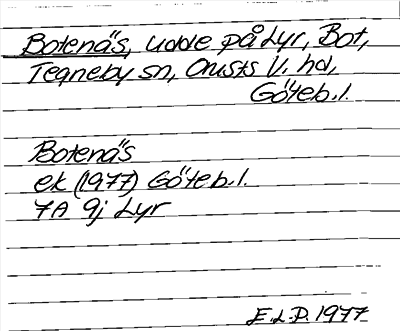 Botenäs, udde på Lyr, Bot,
Tegneby sn, Orusts V. hd,
Göteb.l.
Botenäs
ek (1977) Göteb.l.
7A 9j Lyr
E.L.P. 1977